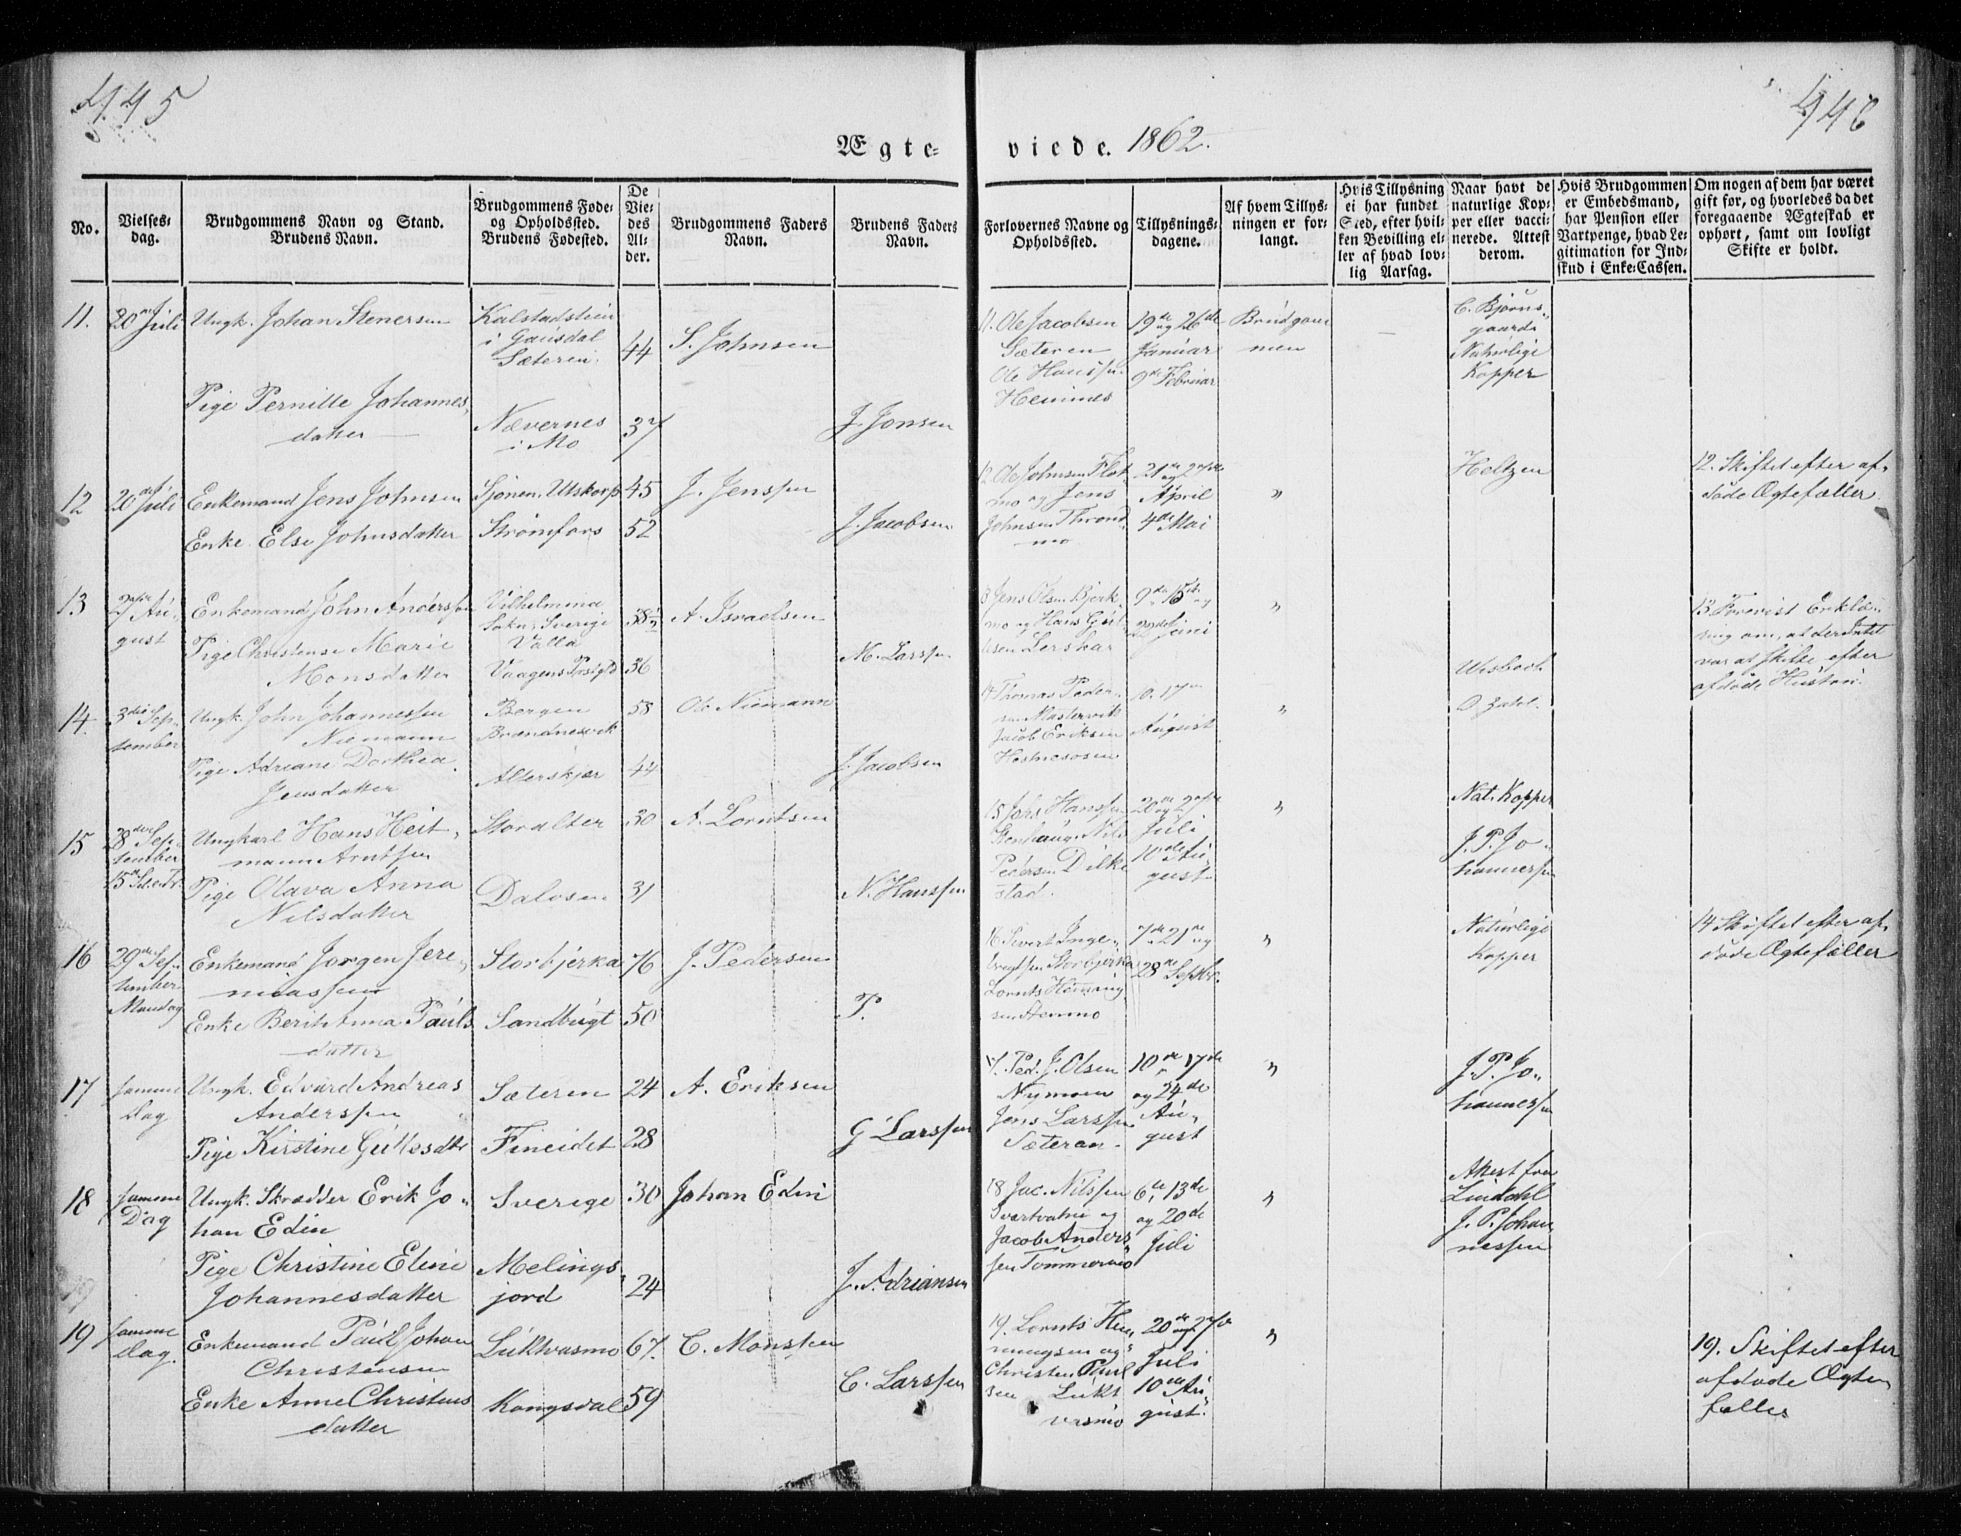 445
446
Ægte-
viede. 1862.
No.
Vielses-
dag.
Brudgommens Navn og Stand.
Brudens Navn.
Brudgommens Føde-
og Opholdssted.
Brudens Fødested.
De
Vie-
des
Al-
der.
Brudgommens Faders
Navn.
Brudens Faders
Navn.
Forlovernes Navne og
Opholdssted.
Tillysnings-
dagene.
Af hvem Tillys-
ningen er for-
langt.
Hvis Tillysning
ei har fundet
Sted, efter hvil-
ken Bevilling el-
ler af hvad lov-
lig Aarsag.
Naar havt de
naturlige Kop-
per eller vacci-
nerede. Attest
derom.
Hvis Brudgommen
er Embedsmand,
har Pension eller
Vartpenge, hvad Le-
gitimation for Ind-
skud i Enke-Cassen.
Om nogen af dem har været
gift før, og hvorledes da det
foregaaende Ægteskab er
ophørt, samt om lovligt
Skifte er holdt.
11.
20de Juli
Ungk. Johan Stenersen
Kalstadstein
i Gausdal
Sæteren.
44
S. Johnsen
11. Ole Jacobsen
Sæteren
Ole Hanssen
Hemmes
19de og 26de
Januar
9de Februar
Brudgom
men
C. Bjørns-
gaard
Naturlige
Kopper
Pige Pernille Johannes-
datter
Nævernes
i Mo
37
J. Jonsen
12
20de Juli
Enkemand Jens Johnsen
Sjonen, Utskorp
45
J. Jenssen
12 Ole Johnsen Flot
mo og Jens
Johnsen Thrond
mo
21de og 27de
April
4de Mai
"
Heltzen
12. Skiftet efter af-
døde Ægtefæller.
Enke Else Johnsdatter
Strømfors
52
J. Jacobsen
13
27de Au-
gust
Enkemand John Anderssen
Vilhelmina
Sokn, Sverige
Valla
38½
A. Israelsen
Jens Olsen Bjerk-
mo og Hans
Lerskar
9de 15de og
22de Juni
"
13 Forevist Erklæ-
ring om, at der Intet
var at skifte efter
afdøde Hustru.
Pige Christense Marie
Monsdatter
36
M. Larssen
14.
3die Sep-
tember
Ungk. John Johannessen
Niemann
Bergen
Brændnesvik
58
Ole Niemann
14 Thomas Peder-
sen Mastervik
Jacob Eriksen
10. 17de
August
"
Pige Adriane Dorthea
Jensdatter
Alterskjær
44
J. Jacobsen
Nat. Kopper
15
28de Sep-
tember
Ungkarl Hans Heit-
mann Arntsen
Storalter
30
A. Lorntsen
15 Johs Hanssen
Stenhaug. Nils
Pedersen Dilke
stad.
20de og 27de
Juli
10de Au-
gust
"
J. P. Jo-
hannessen
Pige Olava Anna
Nilsdatter
Dalosen
31
N. Hanssen
16
29de Sep-
tember
Mandag
Enkemand Jørgen Jere-
miassen
Storbjerka
76
J. Pedersen
16 Sivert Inge-
bregtsen Storbjerka
Lornts Heming-
sen Stenmo
7de 21de og
28de Septbr.
"
Naturlige
Kopper
14 Skiftet efter af-
døde Ægtefæller
Enke Berith Anna Pauls
datter
Sandbugt
50
P.
17
samme
Dag
Ungk. Edvard Andreas
Anderssen
Sæteren
24
A. Eriksen
17. Ped. J. Olsen
Nymoen
Jens Larssen
Sæteran.
10de 17de
og 24de
Au-
gust
"
J. P. Jo-
hannessen
Pige Kirstine Gullesdtr
Fineidet
28
G Larssen
18
samme
Dag
Ungk. Skrædder Erik Jo-
han Edin
Sverige
30
Johan Edin
18 Jac. Nilssen
Svartvatne og
Jacob Anders-
sen Tommermo
6te 13de
og 20de
Juli
"
Attest fra
Lindahl
J. P. Johan
nessen
Pige Christine Eline
Johannesdatter
Melings-
jord
24
J. Adriansen
19
samme
dag.
Enkemand Paul Johan
Christensen
Luktvasmo
67.
C. Monssen
19. Lornts Hem-
mingsen og
Christen Paul
sen Lukt
vasmo
20de og 27de
Juli
10de Au-
gust.
"
19. Skiftet efter
afdøde Ægte
fælle
Enke Anne Christens
datter
Kongsdal
59
C. Larssen